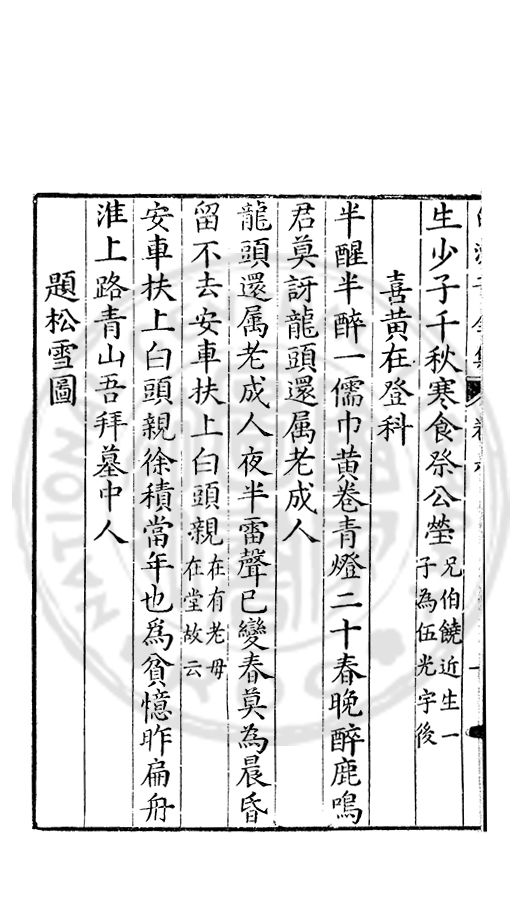 生少子千秋寒食祭公塋兄伯饒近生一
子為伍光宇後
喜黄在登科
半醒半醉一儒巾黄卷青燈二十春晚醉鹿鳴
君莫訝龍頭還属老成人
龍頭還属老成人夜半雷聲已變春莫為晨昏
留不去安車扶上白頭親在有老毋
在堂故云
安車扶上白頭親徐積當年也爲貧憶昨扁舟
淮上路青山吾拜墓中人
題松雪圖